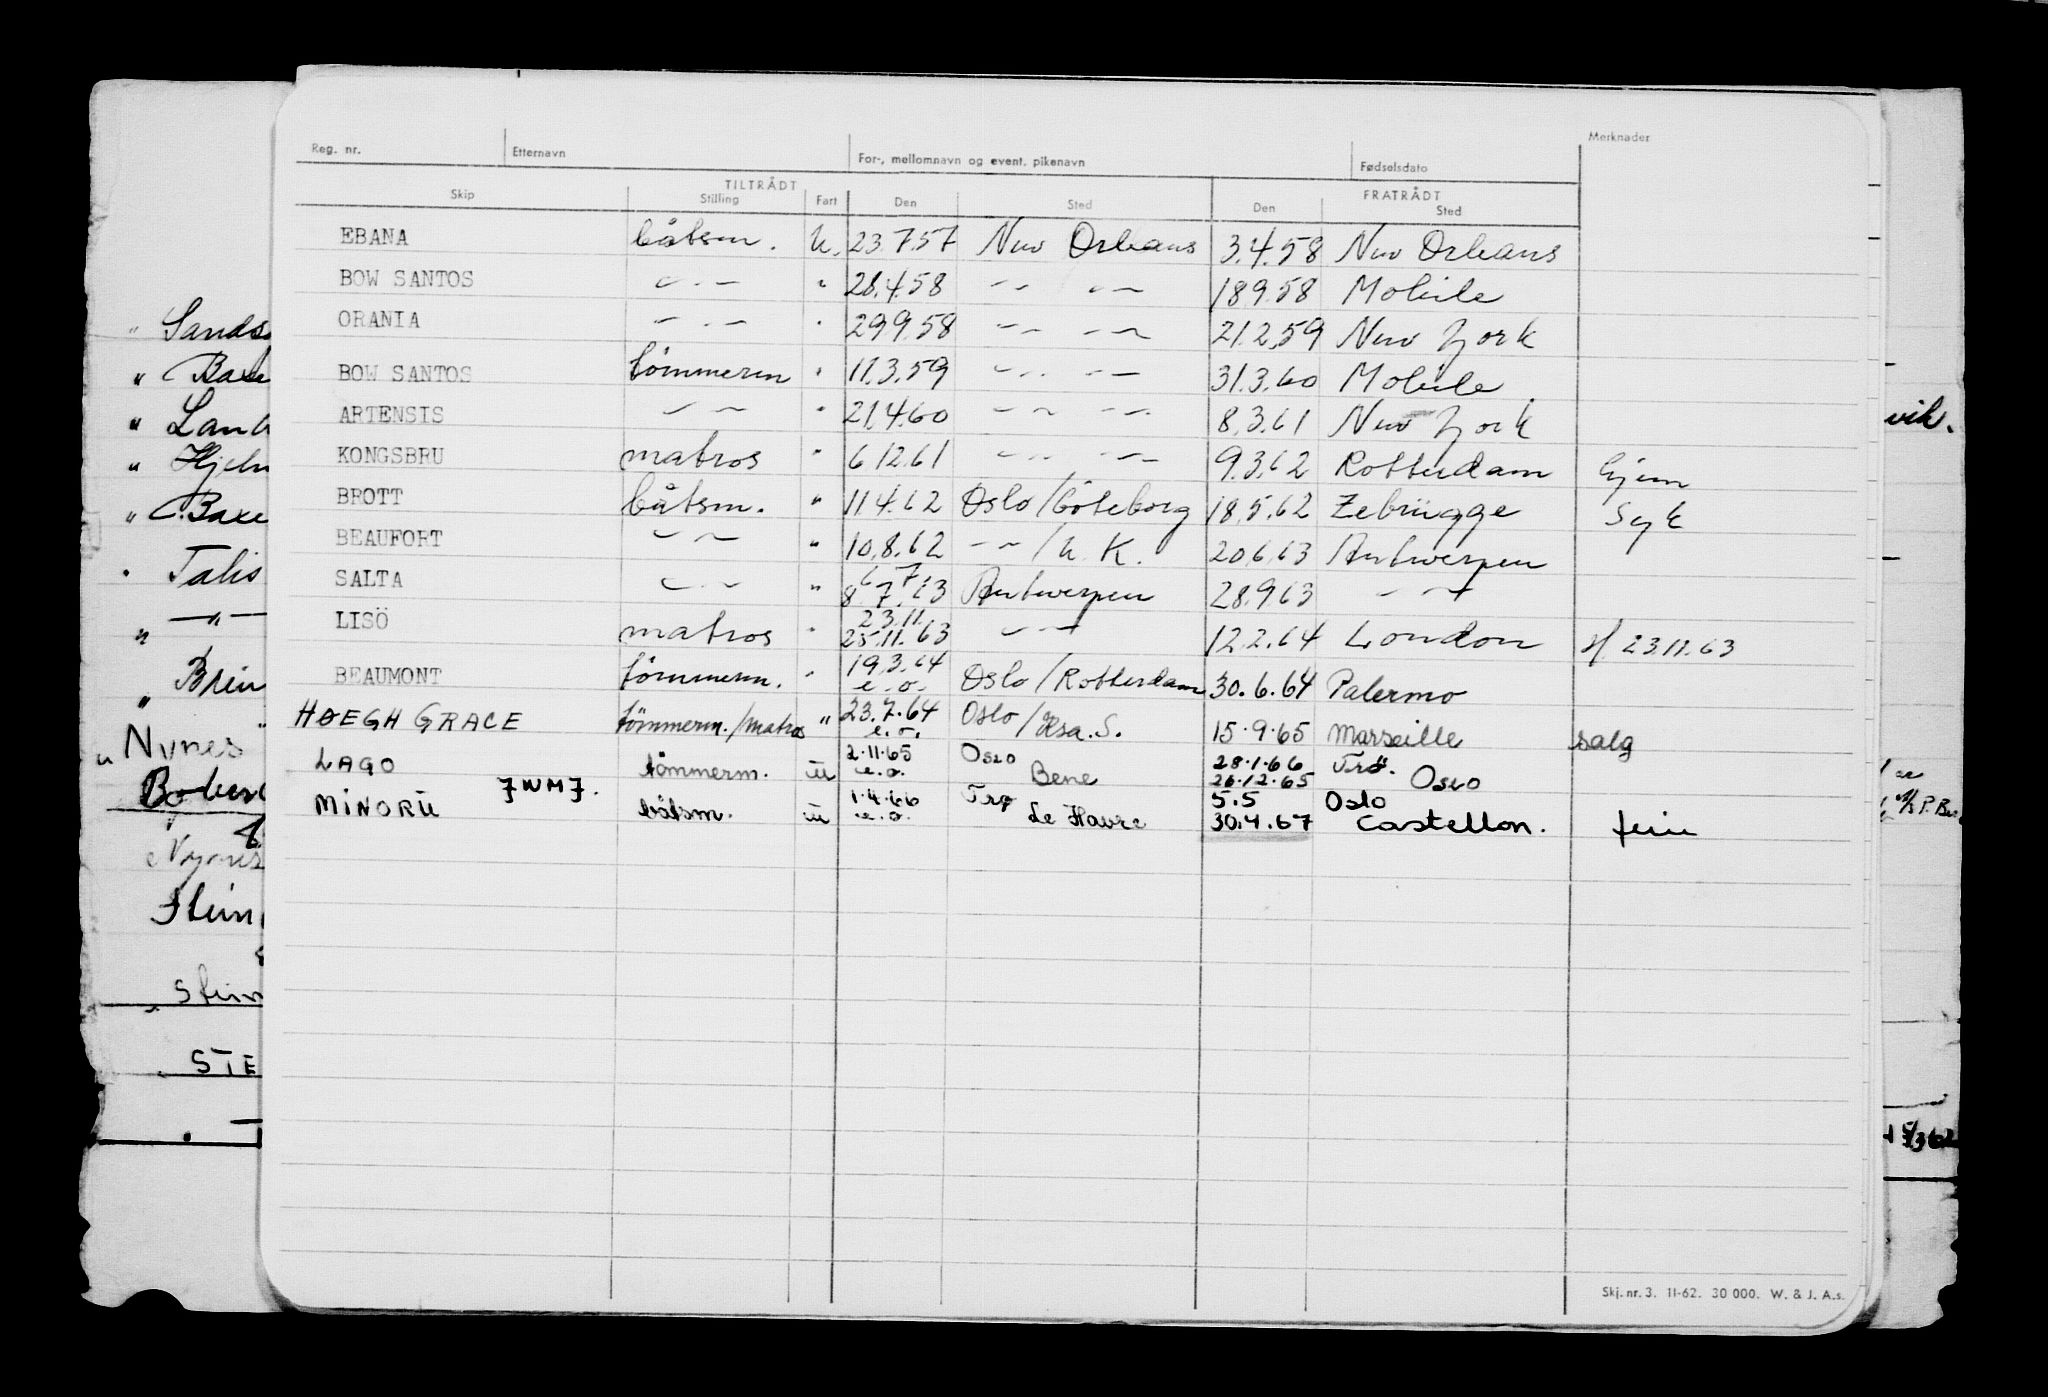 Merknader
Reg. nr. Etternavn For-, mellomnavn og event. pikenavn Fødselsdato
TILTRÅDT FRATRÅDT
Skip Stilling Fart Den Sted Den Sted
EBANA båtsm. U. 23.7.57 New Orleans 3.4.58 New Orleans
BOW SANTOS — " — " 28.4.58 — " — 18.9.58 Mobile
ORANIA — " — " 29.9.58 — " — 21.2.59 New York
BOW SANTOS tömmerm " 11.3.59 — " — 31.3.60 Mobile
ARTENSIS — " — " 21.4.60 — " — 8.3.61 New York
KONGSBRU matros " 6.12.61 — " — 9.3.62 Rotterdam hjem
BROTT båtsm. " 11.4.62 Oslo/Göteborg 18.5.62 Zebrügge Syk
BEAUFORT — " — " 10.8.62 — " — / U.K. 20.6.63 Antwerpen
SALTA — " — " 6 7
8.7.63 Antwerpen 28.9.63 — " —
LISÖ matros " 23.11.
25.11.63 — " — 12.2.64 London 23.11.63
BEAUMONT tömmerm. " 19.3.64
e.o. Oslo/Rotterdam 30.6.64 Palermo
HØEGH GRACE tömmerm./matros " 23.7.64
e.o. Oslo 15.9.65 Marseille salg
LAGO tömmerm. 2.11.65 Oslo 28.1.66
e.o. Bene 26.12.65 Oslo
MINORU båtsm. 1.4.66 5.5 Oslo
e.o. Le Havre 30.4.67 Castellon. ferie
Skj. nr. 3. 11-62. 30 000. W. & J. A.s.
" Baxe
Talis
Nynes
STE
vik.